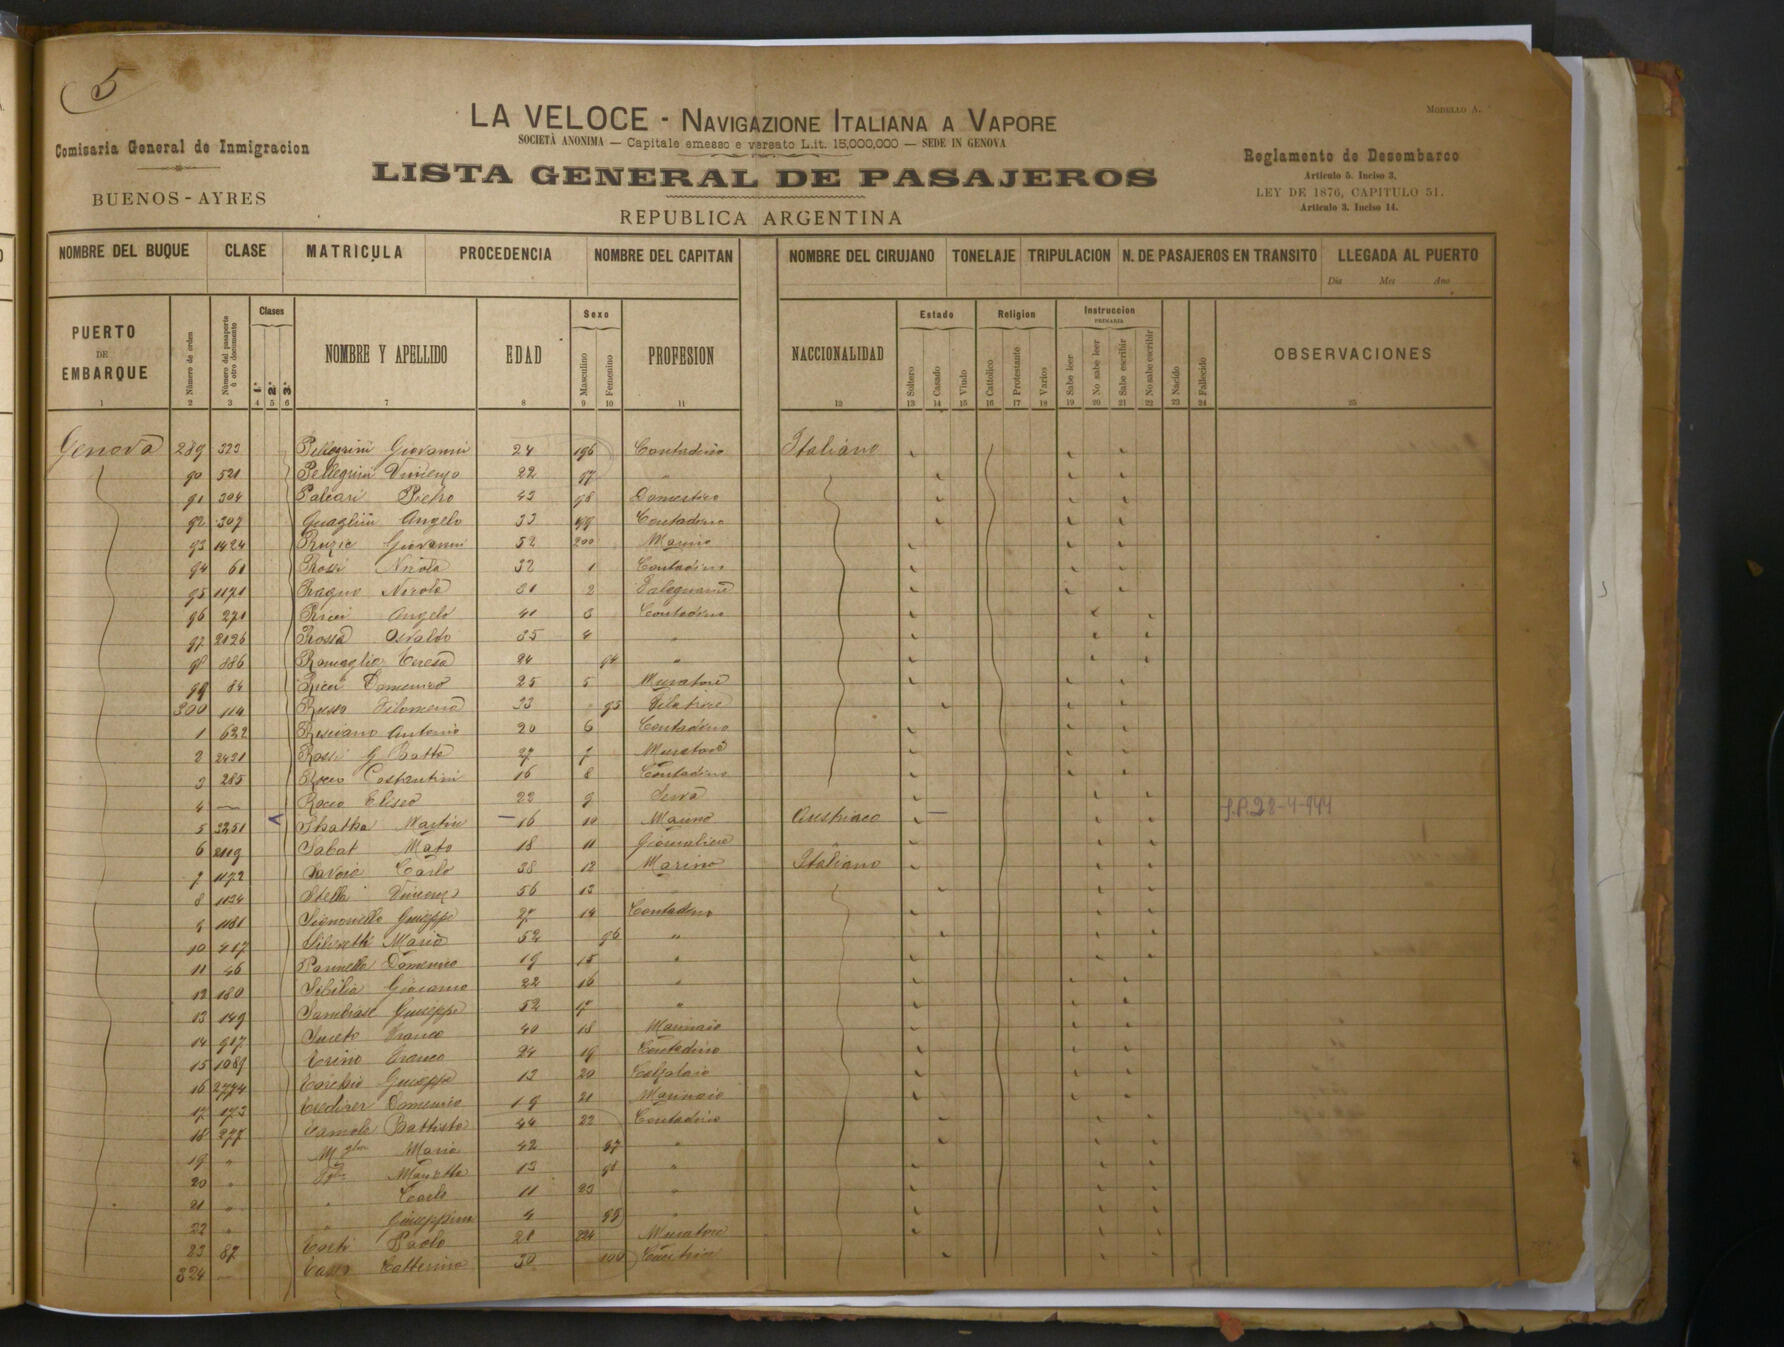 5
LA VELOCE - NAVIGAZIONE ITALIANA A VAPORE
MODELLO A.
SOCIETÀ ANONIMA — Capitale emesso e versato L.it. 15,000,000 — SEDE IN GENOVA
Comisaria General de Inmigracion
BUENOS-AYRES
LISTA GENERAL DE PASAJEROS
REPUBLICA ARGENTINA
Reglamento de Desembarco
Articulo 5. Inciso 3.
LEY DE 1876, CAPITULO 51.
Articulo 3. Inciso 14.
NOMBRE DEL BUQUE CLASE MATRICULA PROCEDENCIA NOMBRE DEL CAPITAN NOMBRE DEL CIRUJANO TONELAJE TRIPULACION N. DE PASAJEROS EN TRANSITO LLEGADA AL PUERTO
Dia Mes Ano
PUERTO DE EMBARQUE Número de orden Número del pasaporte ó otro documento Clases 1.ª 2.ª 3.ª NOMBRE Y APELLIDO EDAD Sexo Masculino Femenino PROFESION NACCIONALIDAD Estado Soltero Casado Viudo Religion Cattolico Protestante Varios Instruccion PRIMARIA Sabe leer No sabe leer Sabe escribir No sabe escribir Nacido Fallecido OBSERVACIONES
1 2 3 4 5 6 7 8 9 10 11 12 13 14 15 16 17 18 19 20 21 22 23 24 25
Genova 289 323 Pellegrini Giovanni 24 196 Contadino Italiano
90 521 Pellegrini Vincenzo 22 97 "
91 304 Paleari Pietro 43 98 Domestico
92 307 Quaglini Angelo 33 99 Contadino
93 1424 Giovanni 52 200 Marino
94 61 Rossi Nicola 32 1 Contadino
95 1171 Ragno Nicola 31 2 Falegname
96 271 Ricci Angelo 41 3 Contadino
97 2126 Rossa Osvaldo 35 4 "
98 886 Romaglio Teresa 24 94 "
99 84 Ricci Domenico 25 5 Muratore
300 114 Russo Filomena 33 95 Filatrice
1 632 Antonio 20 6 Contadino
2 2431 Rossi G Batta 27 7 Muratore
3 285 Rocco Costantini 16 8 Contadino
4 — Rocco Eliseo 22 9
5 3251 Skatka Martin 16 10 Marino Austriaco J.P. 28-4-944
6 2119 Sabat Mato 18 11 Giornaliere "
7 1172 Savoie Carlo 38 12 Marino Italiano
8 1134 Stella Vincenzo 56 13
9 1181 Giuseppe 27 14 Contadino
10 417 Maria 52 96 "
11 46 Pannella Domenico 19 15 "
12 180 Sibilia Giacomo 22 16 "
13 149 Giuseppe 52 17 "
14 917 Franco 40 18 Marinaio
15 1089 Torino Franco 24 19 Contadino
16 2774 Torchio Giuseppe 13 20 Calzolaio
17 173 Domenico 19 21 Marinaio
18 277 Battista 44 22 Contadino
19 " Moglie Maria 42 97 "
20 " Marietta 13 98 "
21 " " Carlo 11 23 "
22 " " Giuseppina 4 99 "
23 87 Torti Paolo 21 224 Muratore
324 — Catterina 30 100 Cucitrice